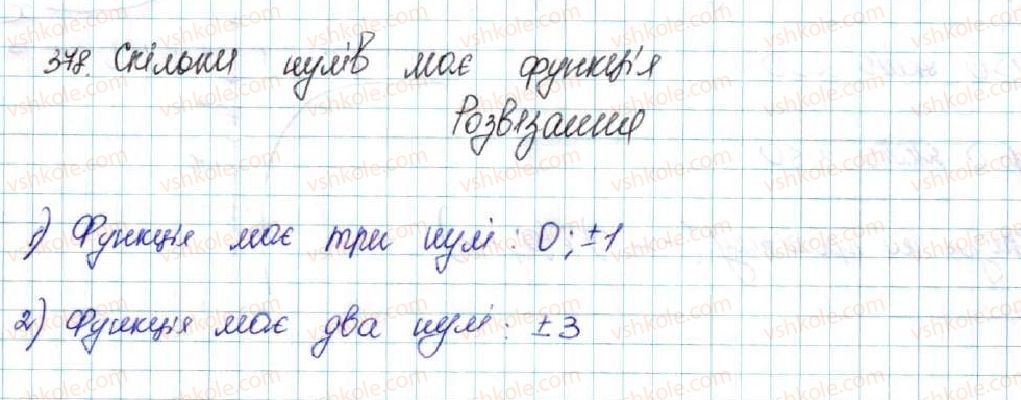 378. Скільки нулів має функція
Розвязання
1) Функція має три нулі: 0; ±1
2) Функція має два нулі: ±3